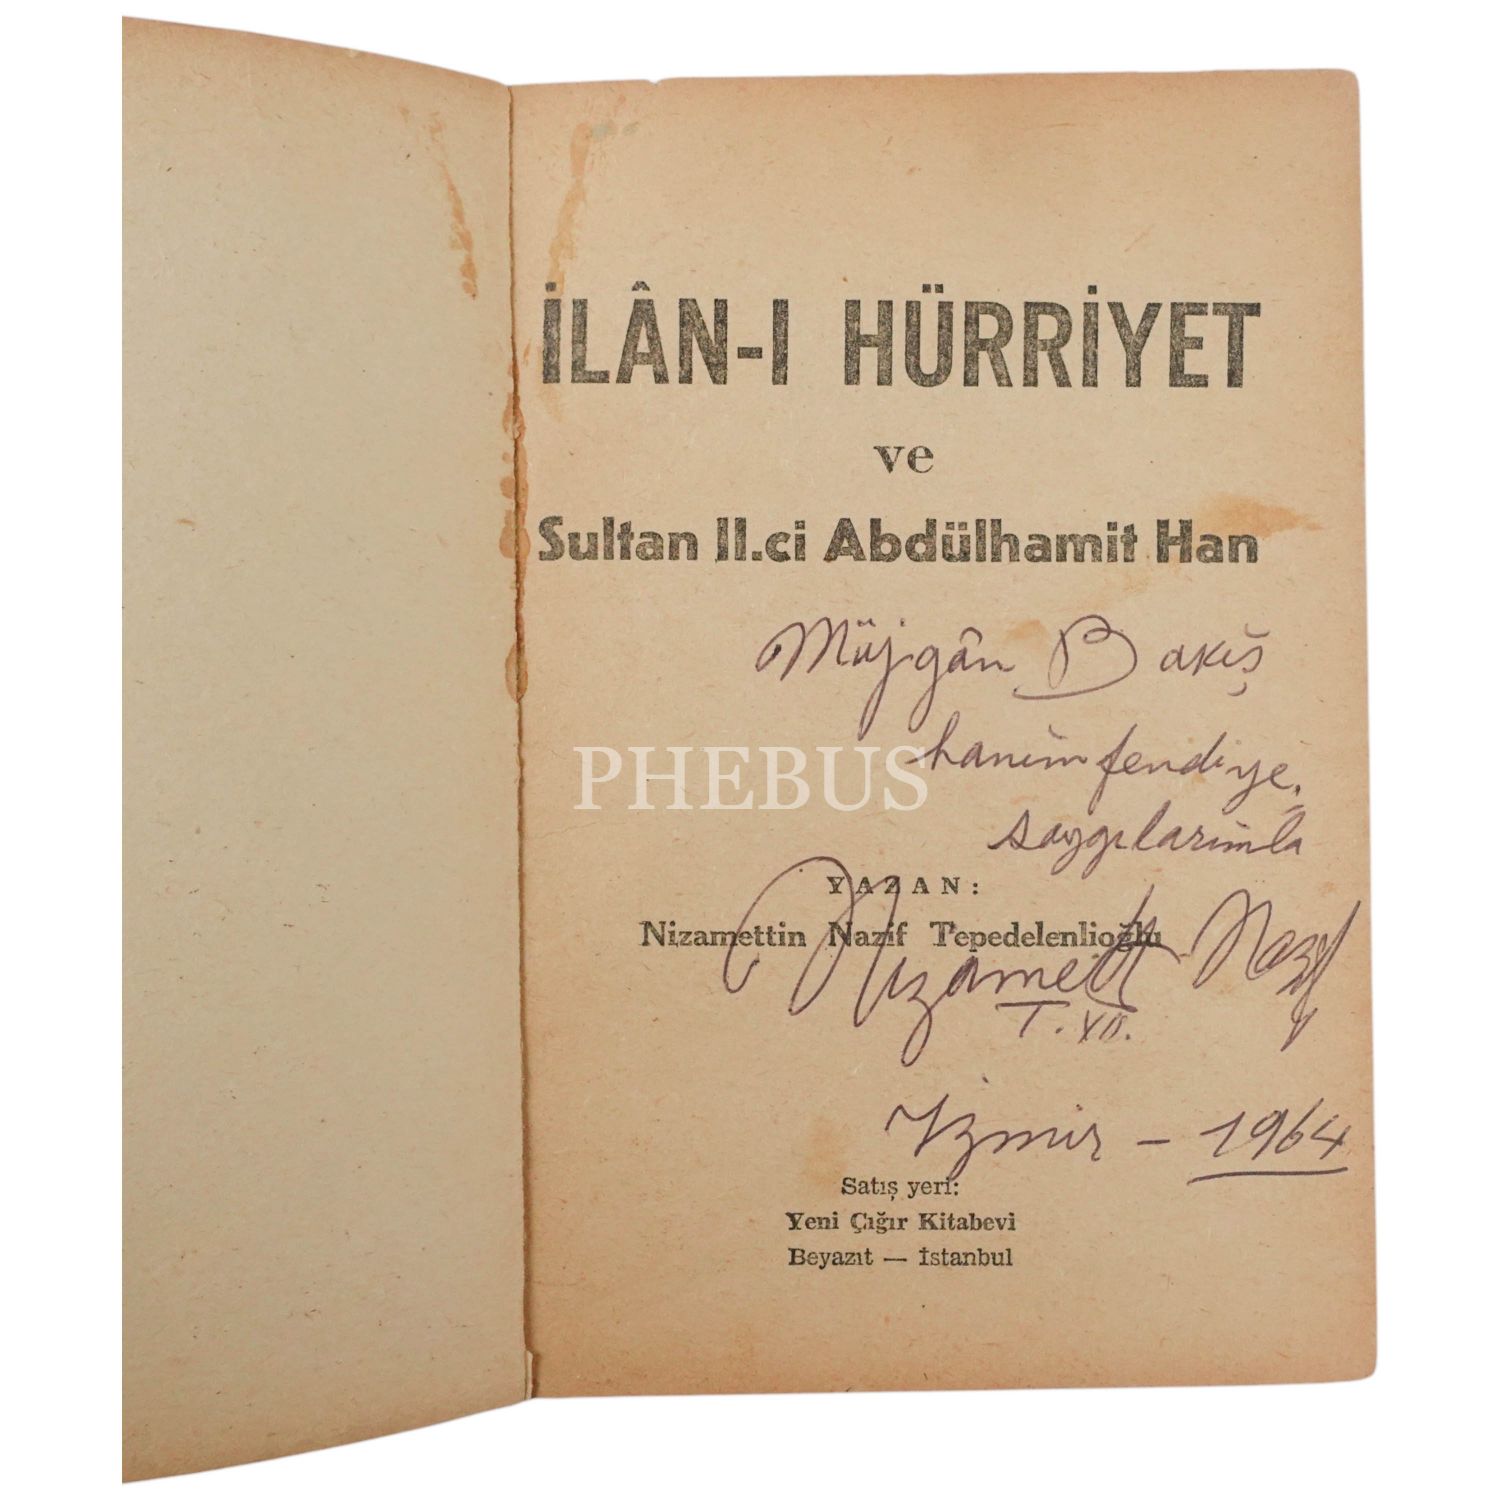 İLÂN-I HÜRRİYET
ve
Sultan II.ci Abdülhamit Han
Müjgân Bakış
hanımfendiye,
saygılarımla
PHEBUS
YAZAN:
Nizamettin Nazif Tepedelenlioğlu
Nizamettin Nazif
T. VII.
İzmir - 1964
Satış yeri:
Yeni Çığır Kitabevi
Beyazıt — İstanbul